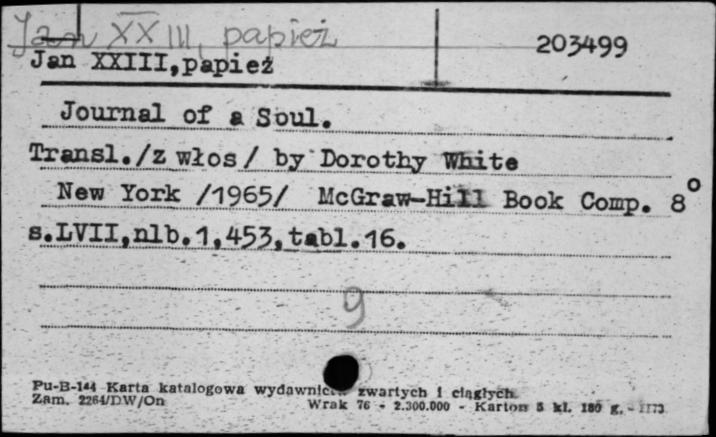 Jan XXIII, papież
203499
Jan XXIII,papież
Journal of a Soul.
Transl./z włos/ by Dorothy White
New York /1965/ McGraw-Hill Book Comp. 8°
s.LVII,nlb.1,453,tabl.16.
9
Pu-B-144 Karta katalogowa zwartych i ciągłych
Zam. 2264/DW/On Wrak 76 - 2.300.000 - Karton 5 kl. 180 g.